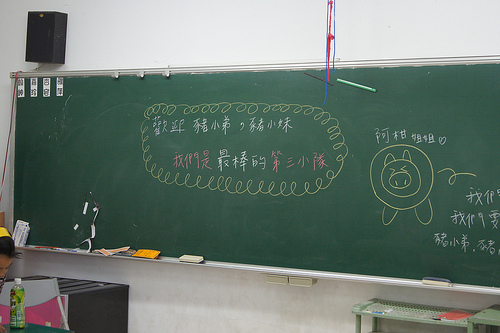 歡迎 豬小弟，豬小妹
我們是最棒的第三小隊
阿柑姐姐♡
我們
我們要
豬小弟、豬